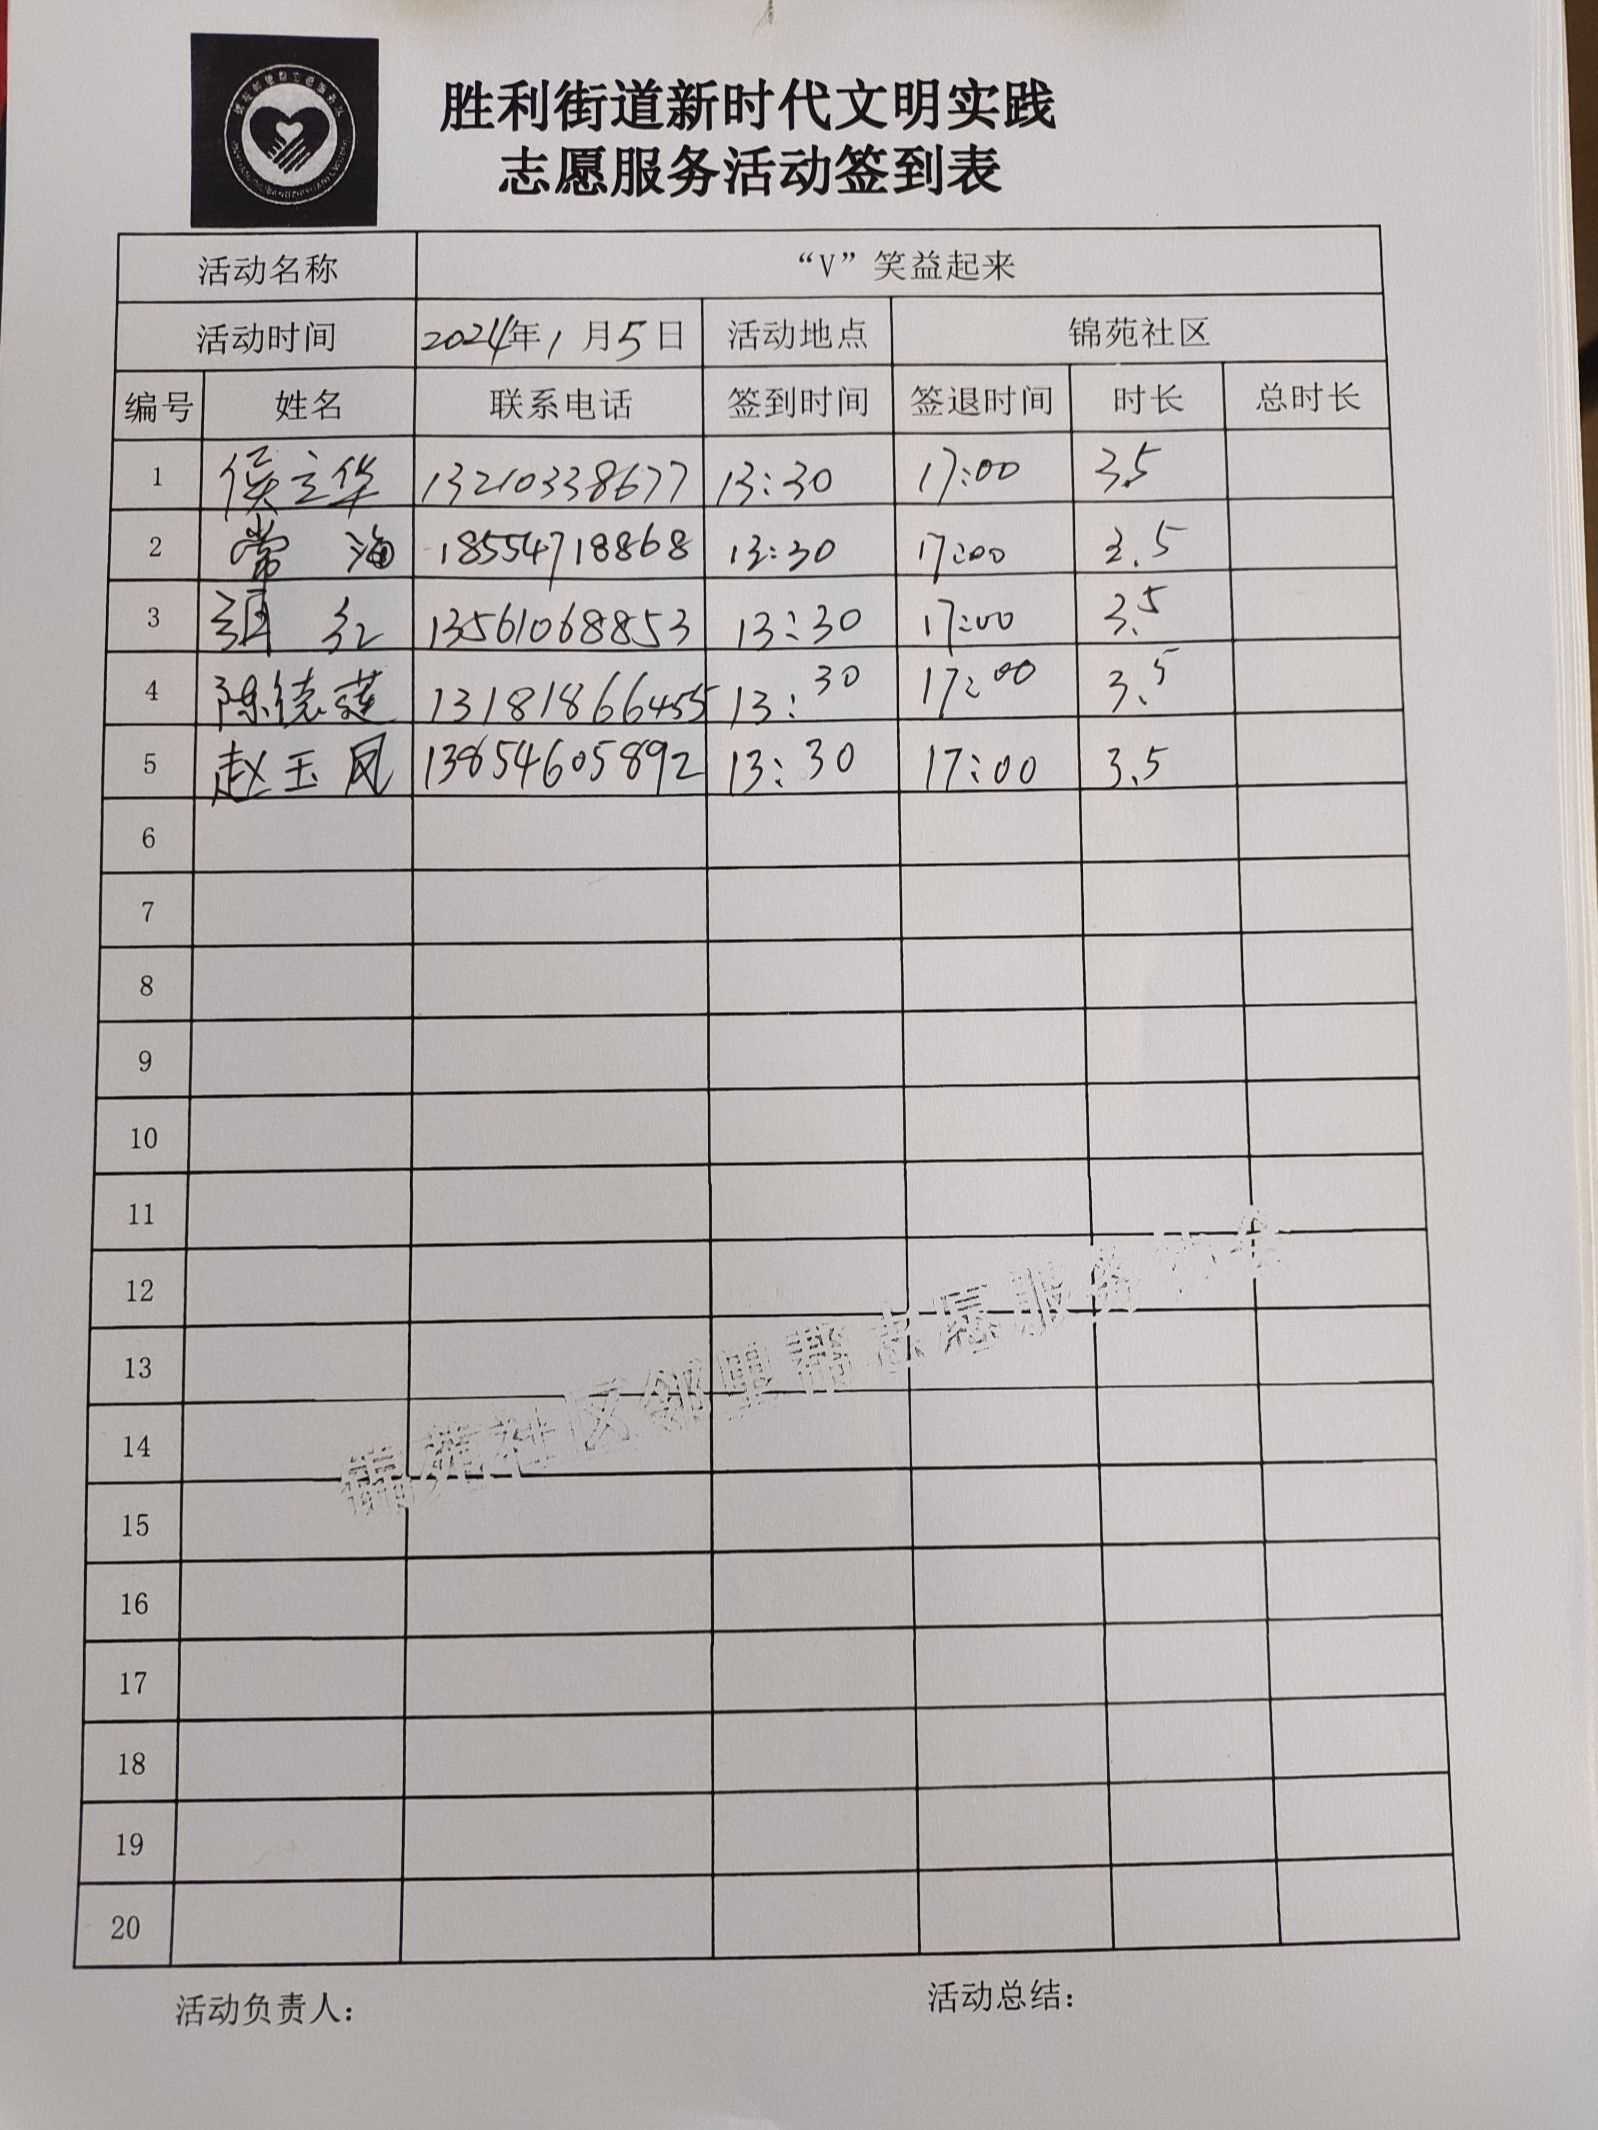 胜利街道新时代文明实践
志愿服务活动签到表
活动名称 “V”笑益起来
活动时间 2024年1月5日 活动地点 锦苑社区
编号 姓名 联系电话 签到时间 签退时间 时长 总时长
1 侯立华 13210338677 13:30 17:00 3.5
2 常海 18554718868 13:30 17:00 3.5
3 红 13561068853 13:30 17:00 3.5
4 陈德莲 13181866455 13:30 17:00 3.5
5 赵玉凤 13854605892 13:30 17:00 3.5
6
7
8
9
10
11
12
13
14
15
16
17
18
19
20
锦苑社区邻里帮志愿服务协会
活动负责人：
活动总结：